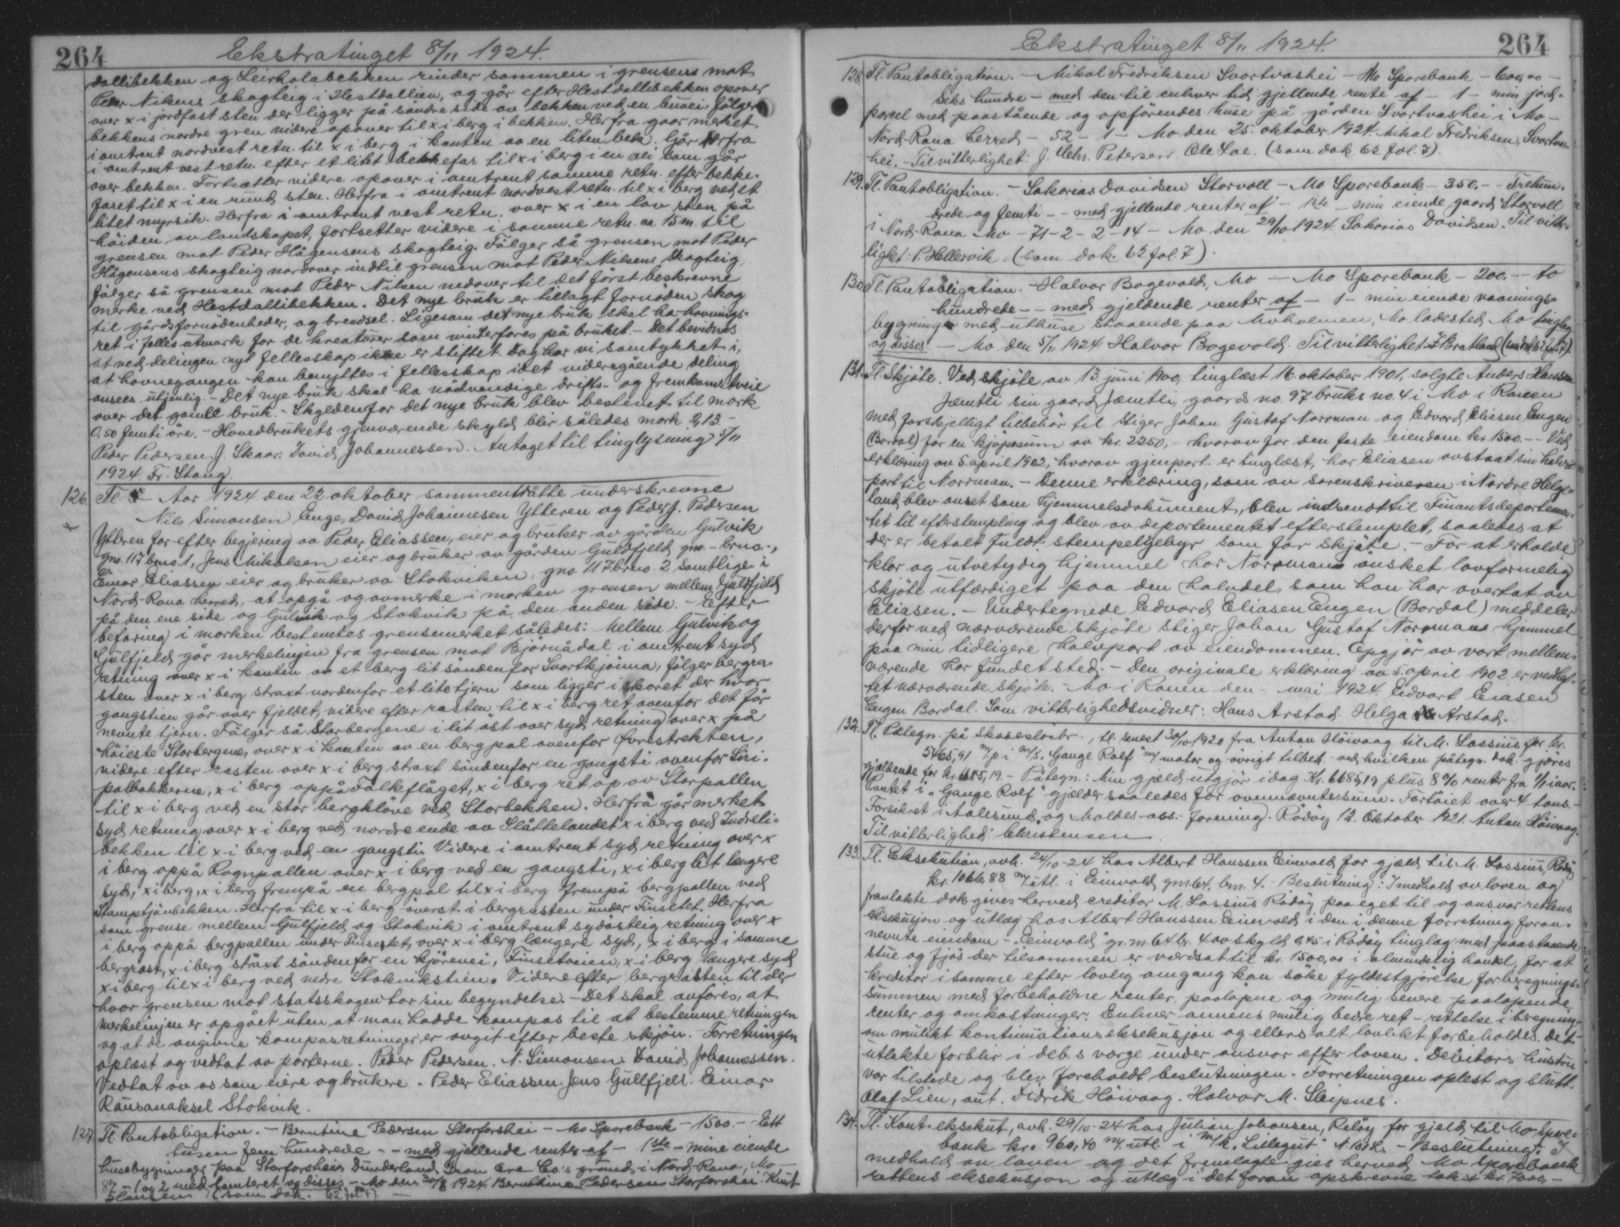 264
Ekstratinget 8/11 1924.
dallibekken og Leirholabekken rinder sammen i grensens mot
Peder Nilsens skogteig i Hestdallien, og går efter Hestdallibekken opover
over x i jordfast sten der ligger på søndre side av bekken ved en følger
bekkens nordre gren videre opover til x i berg i bekken. Herfra gaar merket
i omtrent nordvest retn. til x i berg i kanten av en liten bekk. Går herfra
i omtrent vest retn. efter et litet bekkefar til x i berg i en som går
over bekken. Fortsætter videre opover i omtrent samme retn. efter bekke-
faret til x i en rund sten. Herfra i omtrent nordvest retn. til x i berg ved et
litet myrsik. Herfra i omtrent vest retn. over x i en lav sten på
høiden av landskapet, fortsetter videre i samme retn. ca. 15 m. til
grensen mot Peder Hågensens skogteig. Følger så grensen mot Peder
Hågensens skogteig nordover indtil grensen mot Peder Nilsens skogteig
følger så grensen mot Peder Nilsen nedover til det først beskrevne
merke ved Hestdallibekken. Det nye bruk er tillagt fornøden skog
til gårdsfornødenheder, og brendsel. Ligesom det nye bruk skal ha havnings-
ret i felles utmark for de kreaturer som vinterfores på bruket. - Det bevidnes
at ved delingen nyt fellesskap ikke er stiftet. Dog har vi samtykket i,
at havnegangen kan benyttes i fellesskap idet videregående deling
ansees utjenlig. - Det nye bruk skal ha nødvendige drifts- og fremkomstveie
over det gamle bruk. - Skylden for det nye bruk blev bestemt til mark
0,50 femti øre. - Hovedbrukets gjenværende skyld blir således mark 2,13 -
Peder Pedersen. J. Skaar. David Johannessen. Antaget til tinglysning 7/11
1924 Fr. Stang.
126. Tl - Aar 1924 den 22 oktober sammentrådte underskrevne
Nils Simonsen Enge, David Johannesen Ytteren og Peder J. Pedersen
Ytteren for efter begjering av Peder Eliassen, eier og bruker av gården Gulvik
gno. 117 brno. 1, Jens Mikalsen eier og bruker av gården Gullfjeld gno. - brno. -,
Einar Eliassen eier og bruker av Stokviken, gno. 117 brno 2 samtlige i
Nord-Rana herred, at opgå og avmerke i marken grensen mellem Gullfjeld
på den ene side og Gulvik og Stokvik på den anden side. - Efter
befaring i marken bestemtes grensemerket således: Mellem Gulvik og
Gullfjeld går merkelinjen fra grensen mot Bjørnådal i omtrent syd
retning over x i kanten av et berg lit sønden for Svorttjørna, følger bergra-
sten over x i berg straxt nordenfor et lite tjern som ligger i skaret der hvor
gangstien går over fjeldet, videre efter rasten til x i berg ret ovenfor det før
nevnte tjern. Følger så Storbergene i lit øst over syd retning over x på
høieste Storbergene, over x i kanten av en berg pal ovenfor
videre efter rasten over x i berg straxt søndenfor en gangsti ovenfor Liri-
palbakkerne, x i berg oppå Falkeflåget, x i berg ret op av Storpallen
til x i berg ved en stor bergkløve ved Storbekken. Herfra går merket
syd retning over x i berg ved nordre ende av Slåttelandet x i berg ved Indreli-
bekken til x i berg ved en gangsti. Videre i omtrent syd retning over x
i berg oppå Rognpallen over x i berg ved en gangsti, x i berg lit lengere
syd, x i berg, x i berg frempå en bergpal til x i berg frempå bergpallen ved
Stamptjønbekken. Herfra til x i berg øverst i bergrasten under Finsetet. Herfra
som grense mellem Gullfjeld og Stokvik i omtrent sydøstlig retning over x
i berg oppå bergpallen under Finsetet, over x i berg længere syd, x i berg i samme
bergrast, x i berg straxt søndenfor en kjørevei, Finsetveien, x i berg lengere syd
x i berg til x i berg ved nedre Stokvikstien. Videre efter bergrasten til der
hvor grensen mot statsskogen tar sin begyndelse. - Det skal anføres, at
merkelinjen er opgået uten at man hadde kompas til at bestemme retningen
og at de angivne kompasretninger er avgit efter beste skjøn. - Forretningen
oplæst og vedtat av parterne. Peder Pedersen. N. Simonsen. David Johannessen.
Vedtat av os som eiere og brukere. Peder Eliassen. Jens Gullfjell. Einar
Stokvik.
127. Tl. Pantobligation. - Berntine Pedersen Storforshei - Mo Sparebank - 1500. - Ett
tusen fem hundrede - - med gjeldende renter af - 1ste - mine eiende
husebygninger paa Storforsheien, Dunderland Iron Ore Co's grund i Nord-Rana, Mo
87 - 1 og 2 med tomteret og disses - Mo den 30/8 1924 Berntine Pedersen Storforshei. Knut
(som dok. 62 fol. 7)
264
Ekstratinget 8/11 1924.
128. Tl. Pantobligation. - Mikal Fredriksen Svortvashei - Mo Sparebank - 600,00 -
Seks hundre - med den til enhver tid gjeldende rente af - 1 - min jord-
parcel med paastående og opførendes huse på gården Svortvashei i Mo -
Nord-Rana herred - 52 - 1 - Mo den 25. oktober 1924. Mikal Fredriksen, Svortvas-
hei. - Til vitterlighet: J. Petersen. Ole Lae. (som dok. 62 fol. 7).
129. Tl. Pantobligation. - Sakarias Davidsen Storvoll - Mo Sparebank - 350. - Trehun-
drede og femti - - med gjeldende renter af - 1ste - min eiende gaard Storvoll
i Nord-Rana Mo - 71-2 - 2-14 - Mo den 29/10 1924 Sakarias Davidsen. Til vitter-
lighet: P. Hellervik. (som dok. 62 fol. 7).
130. Tl. Pantobligation. - Halvor Bogevold, Mo - Mo Sparebank - 200. - - to
hundrede - - med gjeldende renter af - 1 - min eiende vaanings-
bygning med uthuse staaende paa Moholmen, Mo ladested, Mo tinglag
og disses. - Mo den 5/11 1924 Halvor Bogevold. Til vitterlighet: Bratland (som dok 62 fol. 7).
131. Tl. Skjøte. Ved skjøte av 13 juni 1900, tinglæst 16 oktober 1901, solgte Anders Hanssen
Jæmtli sin gaard Jæmtli, gaards no. 97 bruks no. 4 i Mo i Ranen
med forskjelligt tilbehør til Stiger Johan Gustaf Norrman og Edvard Eliesen Engen
(Bordal) for en kjøpesum av kr. 2250. - hvorav for den faste eiendom kr. 1500. - - Ved
erklæring av 5 april 1902, hvorav gjenpart er tinglæst, har Eliasen avstaat sin halve
part til Norrman. - Denne erklæring, som av sorenskriveren i Nordre Helge-
land blev anset som hjemmelsdokument, blev indsendt til Finantsdepartemen-
tet til efterstempling og blev av departementet efterstemplet, saaledes at
der er betalt fuldt stempelgebyr som for skjøte. - For at erholde
klar og utvetydig hjemmel har Norrman ønsket lovformelig
skjøte utfærdiget paa den halvdel som han har overtat av
Eliasen. - Undertegnede Edvard Eliasen Engen (Bordal) meddeler
derfor ved nærværende skjøte stiger Johan Gustaf Norrmann hjemmel
paa min tidligere halvpart av eiendommen. Opgjør av vort mellem-
værende har fundet sted. - Den originale erklæring av 5 april 1902 er vedhef-
tet nærværende skjøte. - Mo i Ranen den mai 1924. Edvart Eiasen
Engen Bordal. Som vitterlighedsvidner: Hans Arstad. Helga Arstad.
132. Tl. Pategn. på skadesløsbr., tl. senest 30/10 1920 fra Antan Høivaag til M. Lossius for kr.
5468,91 m/p i m/k. "Gange Rolf" m/ motor og øvrigt tilbeh. ved hvilken påtegn. dok. gjøres
gjældende for kr. 6685,19. - Påtegn: Min gjæld utgjør idag Kr. 6685,19 plus 8% rente fra 1/1 iaar.
Pantet i "Gange Rolf" gjælder saaledes for ovennævnte sum. Fartøiet over 4 tons. -
Forsikret i Aalesunds og Moldes ass. forening. Rødøy 12. Oktober 1921. Antan Høivaag.
Til vitterlighed: Christensen.
133. Tl. Eksekution, avh. 24/10-24 hos Albert Hanssen Eimvold, for gjæld til M. Lossius, Rødø
kr. 1066,88 m/ utl. i Eimvold, gno. 64, bno. 4. - Beslutning: I medhold av loven og
fremlakte dok. gives herved creditor M. Lossius Rødøy paa eget til og ansvar rettens
eksekusjon og utlæg hos Albert Hanssen Eimvold i den i denne forretning foran-
nevnte eiendom - "Eimvold" gr.no. 64 br. 4 av skyld 0.45 i Rødøy tinglag med paastaaende
stue og fjøs der tilsammen er værdsat til kr. 1500,00 i almindelig handel, for at
kreditor i samme efter lovlig omgang kan søke fyldestgjørelse for beregnings-
summen med forbeholdne renter, paaløpne og mulig senere paaløpende
renter og omkostninger. Enhver annens mulig bedre ret - rettelse i beregning
om mulikt kontinuationseksekusjon og ellers alt lovlikt forbeholdes. Det
utlakte forblir i deb.s varge under ansvar efter loven. Debitors hustru
var tilstede og blev foreholdt beslutningen. Forretningen oplest og slutt.
Olaf Lien, aut. Didrik Høivaag. Halvor M. Sleipnes.
134. Tl. Kont. eksekut., avh. 29/10-24 hos Julian Johansen, Reløy for gjeld til Mo Spare-
bank kr. 960,40 m/ utl. i m/k. "Lillegut" - Beslutning: I
medhold av loven og det fremlagte gies herved Mo Sparebank
rettens eksekusjon og utlæg i det foran opskrevne takst kr. 7000,-